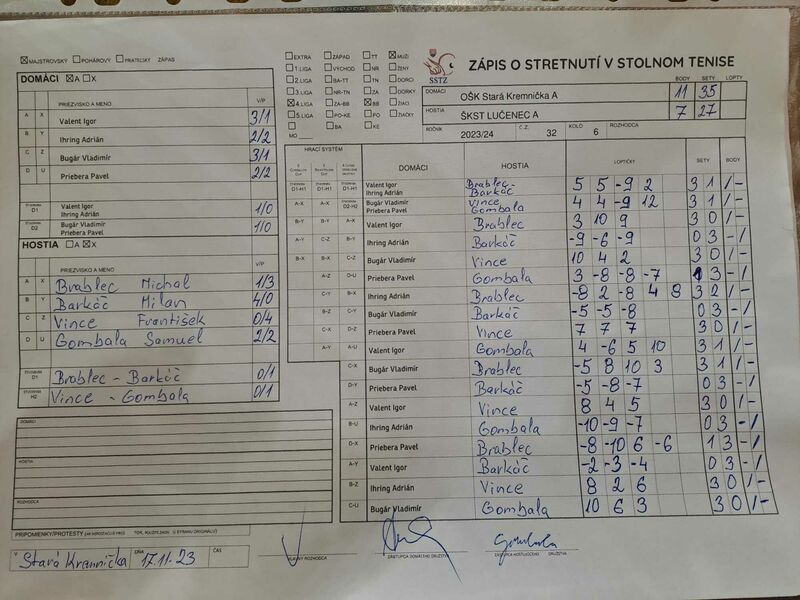 MAJSTROVSKÝ POHÁROVÝ PRIATEĽSKÝ ZÁPAS
DOMÁCI A X
PRIEZVISKO A MENO V/P
A X Valent Igor 3/1
B Y Ihring Adrián 2/2
C Z Bugár Vladimír 3/1
D U Priebera Pavel 2/2
D1 Valent Igor Ihring Adrián 1/0
D2 Bugár Vladimír Priebera Pavel 1/0
HOSTIA A X
PRIEZVISKO A MENO V/P
A X Brablec Michal 1/3
B Y Barkáč Milan 4/0
C Z Vince František 0/4
D U Gombala Samuel 2/2
D1 Brablec - Barkáč 0/1
H2 Vince - Gombala 0/1
DOMÁCI
HOSTIA
ROZHODCA
PRIPOMIENKY/PROTESTY
V Stará Kremnička DŇA 17.11.23 ČAS
EXTRA ZÁPAD TT MUŽI
1. LIGA VÝCHOD NR ŽENY
2. LIGA BA-TT TN DORCI
3. LIGA NR-TN ZA DORKY
4. LIGA ZA-BB BB ŽIACI
5. LIGA PO-KE PO ŽIAČKY
BA KE
MO
SSTZ
ZÁPIS O STRETNUTÍ V STOLNOM TENISE
BODY SETY LOPTY
DOMÁCI OŠK Stará Kremnička A 11 35
HOSTIA ŠKST LUČENEC A 7 27
ROČNÍK 2023/24 Č.Z. 32 KOLO 6 ROZHODCA
HRACÍ SYSTÉM
DOMÁCI HOSTIA LOPTIČKY SETY BODY
D1-H1 D1-H1 D1-H1 Valent Igor Ihring Adrián Brablec - Barkáč 5 5 -9 2 3 1 1/-
A-X A-X D2-H2 Bugár Vladimír Priebera Pavel Vince Gombala 4 4 -9 12 3 1 1/-
B-Y B-Y A-X Valent Igor Brablec 3 10 9 3 0 1/-
A-Y C-Z B-Y Ihring Adrián Barkáč -9 -6 -9 0 3 -/1
B-X B-X C-Z Bugár Vladimír Vince 10 4 2 3 0 1/-
A-Z D-U Priebera Pavel Gombala 3 -8 -8 -7 1 3 -/1
C-Y B-X Ihring Adrián Brablec -8 2 -8 4 9 3 2 1/-
B-Z C-Y Bugár Vladimír Barkáč -5 -5 -8 0 3 -/1
C-X D-Z Priebera Pavel Vince 7 7 7 3 0 1/-
A-Y A-U Valent Igor Gombala 4 -6 5 10 3 1 1/-
C-X Bugár Vladimír Brablec -5 8 10 3 3 1 1/-
D-Y Priebera Pavel Barkáč -5 -8 -7 0 3 -/1
A-Z Valent Igor Vince 8 4 5 3 0 1/-
B-U Ihring Adrián Gombala -10 -9 -7 0 3 -/1
D-X Priebera Pavel Brablec -8 -10 6 -6 1 3 -/1
A-Y Valent Igor Barkáč -2 -3 -4 0 3 -/1
B-Z Ihring Adrián Vince 8 2 6 3 0 1/-
C-U Bugár Vladimír Gombala 10 6 3 3 0 1/-
Gombala
HLAVNÝ ROZHODCA ZÁSTUPCA DOMÁCEHO DRUŽSTVA ZÁSTUPCA HOSŤUJÚCEHO DRUŽSTVA